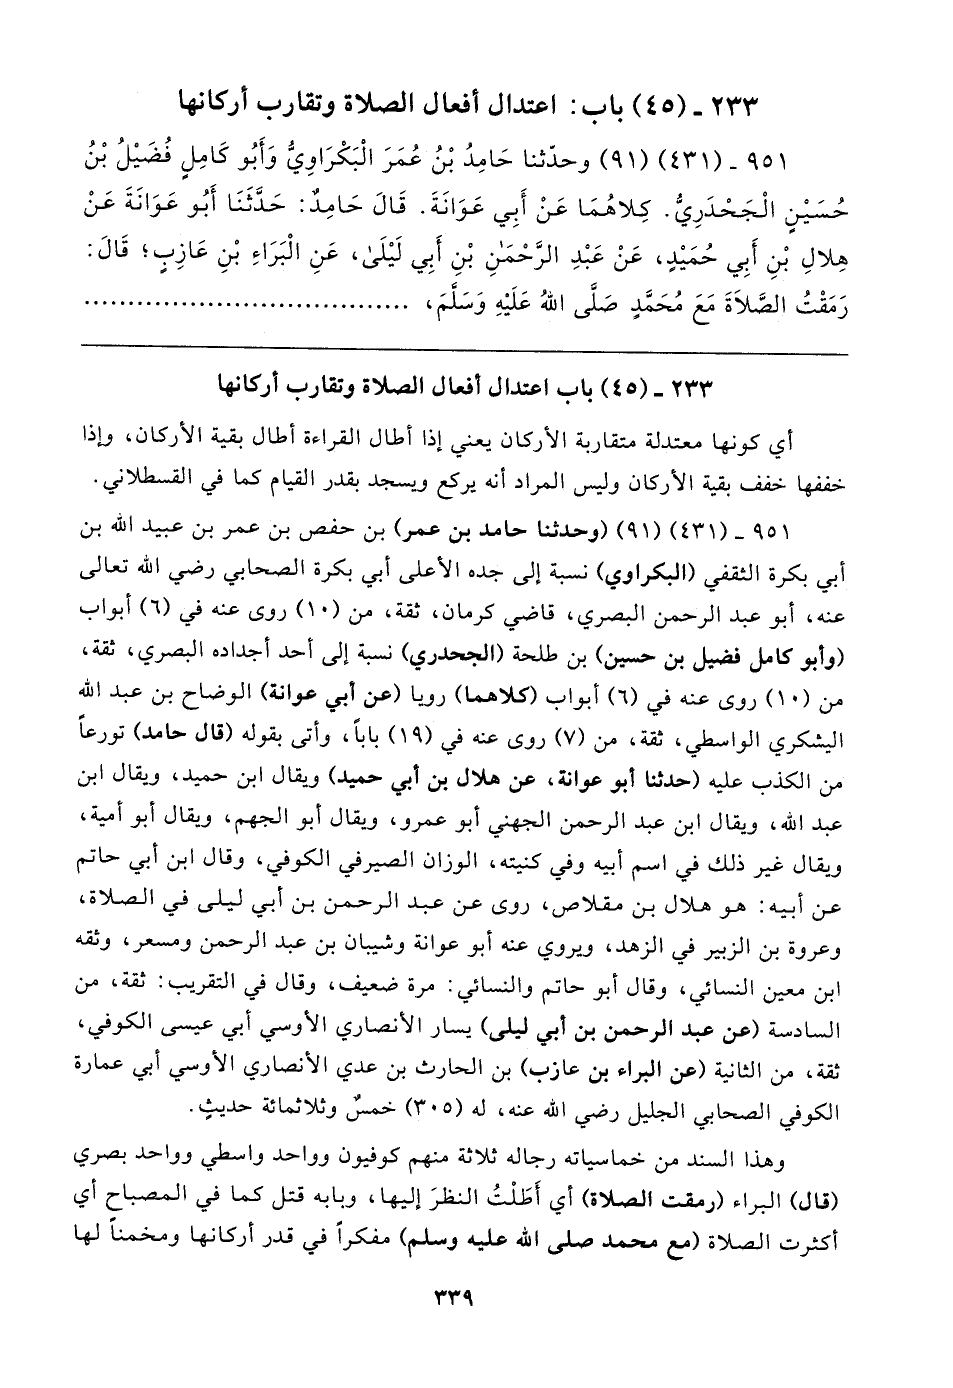 ٢٣٣ ـ (٤٥) باب: اعتدال أفعال الصلاة وتقارب أركانها
٩٥١ ـ (٤٣١) (٩١) وحدّثنا حَامِدُ بْنُ عُمَرَ الْبَكْرَاوِيُّ وَأَبُو كَامِلٍ فُضَيْلُ بْنُ
حُسَيْنٍ الْجَحْدَرِيُّ. كِلاهُمَا عَنْ أَبِي عَوَانَةَ. قَالَ حَامِدٌ: حَدَّثَنَا أَبُو عَوَانَةَ عَنْ
هِلالِ بْنِ أَبِي حُمَيْدٍ، عَنْ عَبْدِ الرَّحْمَنِ بْنِ أَبِي لَيْلَىٰ، عَنِ الْبَرَاءِ بْنِ عَازِبٍ؛ قَالَ:
رَمَقْتُ الصَّلاَةَ مَعَ مُحَمَّدٍ صَلَّى اللهُ عَلَيْهِ وَسَلَّمَ، .....................................
٢٣٣ ـ (٤٥) باب اعتدال أفعال الصلاة وتقارب أركانها
أي كونها معتدلة متقاربة الأركان يعني إذا أطال القراءة أطال بقية الأركان، وإذا
خففها خفف بقية الأركان وليس المراد أنه يركع ويسجد بقدر القيام كما في القسطلاني.
٩٥١ ـ (٤٣١) (٩١) (وحدثنا حامد بن عمر) بن حفص بن عمر بن عبيد الله بن
أبي بكرة الثقفي (البكراوي) نسبة إلى جده الأعلى أبي بكرة الصحابي رضي الله تعالى
عنه، أبو عبد الرحمن البصري، قاضي كرمان، ثقة، من (١٠) روى عنه في (٦) أبواب
(وأبو كامل فضيل بن حسين) بن طلحة (الجحدري) نسبة إلى أحد أجداده البصري، ثقة،
من (١٠) روى عنه في (٦) أبواب (كلاهما) رويا (عن أبي عوانة) الوضاح بن عبد الله
اليشكري الواسطي، ثقة، من (٧) روى عنه في (١٩) باباً، وأتى بقوله (قال حامد) تورعاً
من الكذب عليه (حدثنا أبو عوانة، عن هلال بن أبي حميد) ويقال ابن حميد، ويقال ابن
عبد الله، ويقال ابن عبد الرحمن الجهني أبو عمرو، ويقال أبو الجهم، ويقال أبو أمية،
ويقال غير ذلك في اسم أبيه وفي كنيته، الوزان الصيرفي الكوفي، وقال ابن أبي حاتم
عن أبيه: هو هلال بن مقلاص، روى عن عبد الرحمن بن أبي ليلى في الصلاة،
وعروة بن الزبير في الزهد، ويروي عنه أبو عوانة وشيبان بن عبد الرحمن ومسعر، وثقه
ابن معين النسائي، وقال أبو حاتم والنسائي: مرة ضعيف، وقال في التقريب: ثقة، من
السادسة (عن عبد الرحمن بن أبي ليلى) يسار الأنصاري الأوسي أبي عيسى الكوفي،
ثقة، من الثانية (عن البراء بن عازب) بن الحارث بن عدي الأنصاري الأوسي أبي عمارة
الكوفي الصحابي الجليل رضي الله عنه، له (٣٠٥) خمسٌ وثلاثمائة حديثٍ.
وهذا السند من خماسياته رجاله ثلاثة منهم كوفيون وواحد واسطي وواحد بصري
(قال) البراء (رمقت الصلاة) أي أَطَلْتُ النظرَ إليها، وبابه قتل كما في المصباح أي
أكثرت الصلاة (مع محمد صلى الله عليه وسلم) مفكراً في قدر أركانها ومخمناً لها
٣٣٩